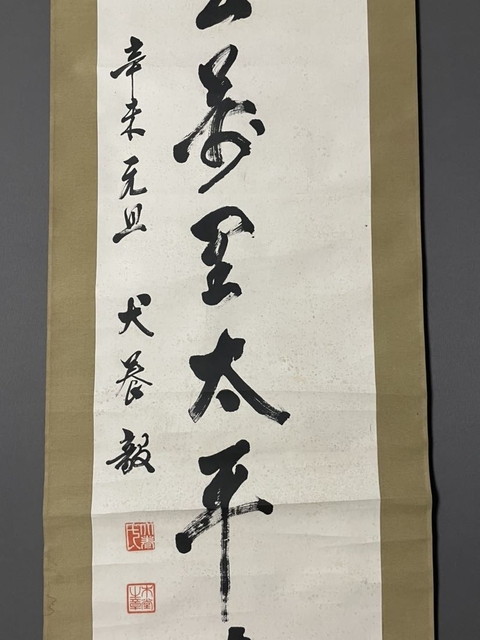 萬里太平
辛未元旦 犬養毅